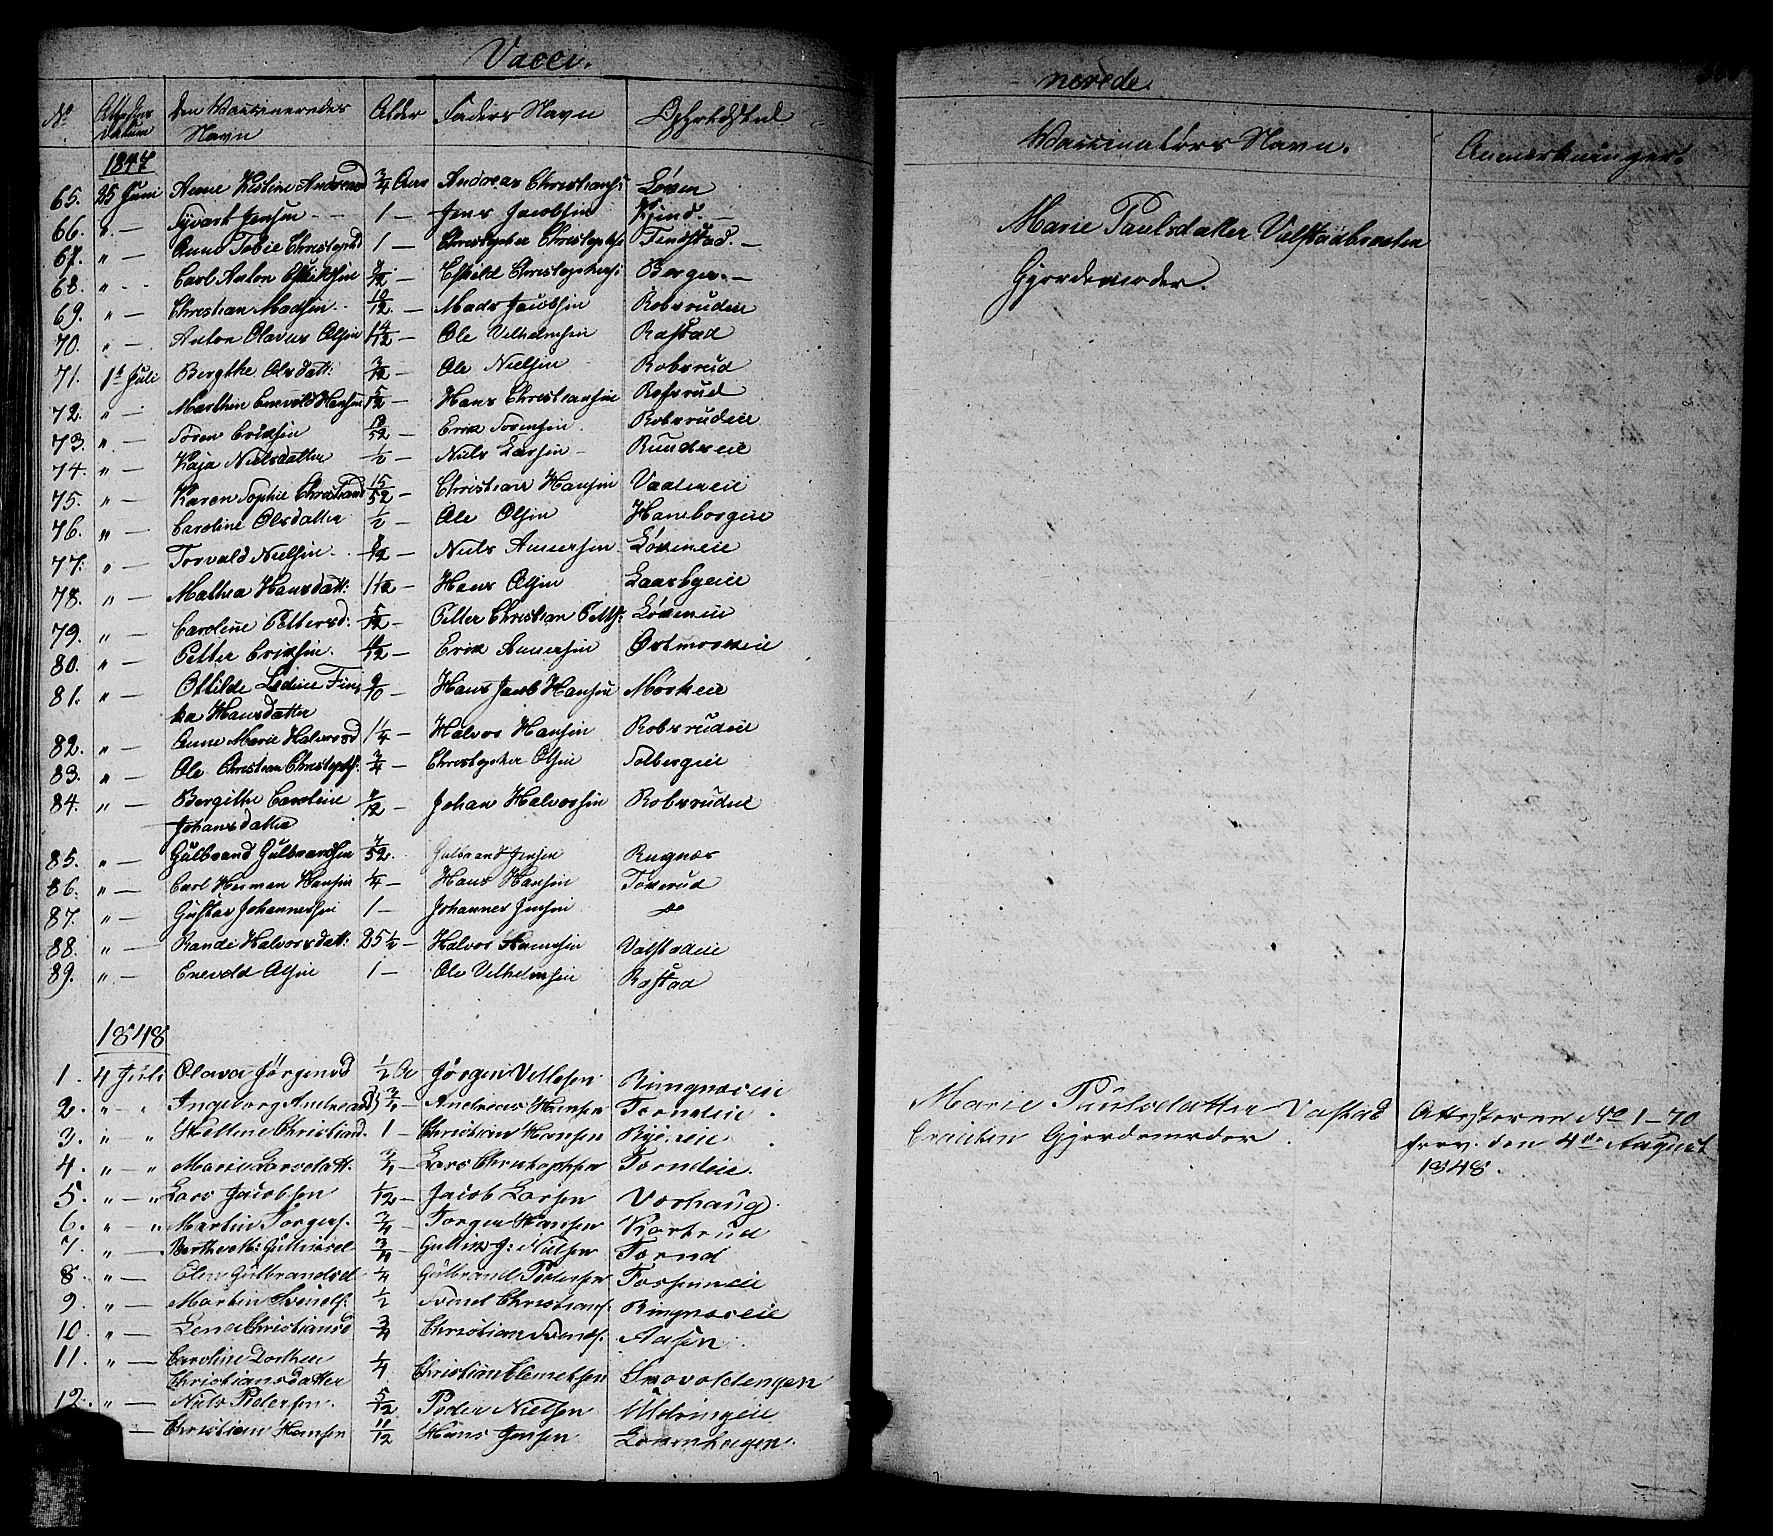 Vacci.
No Attestens Datum den Vaccineredes Navn Alder Faders Navn Opholdsted
1847
65. 25 Juni Anne Kistine Andreasd 3/4 Aar Andreas Christians: Løken
66. " — Syvart Jensen - - 1 — Jens Jacobsen Kjind. —
67. " — Anne Tobie Christophd 1 — Christopher Christophs: Findstad. —
68. " - - Carl Anton Eskildsen /12 - Eskild Christophers: Berger. —
69. " — Christian Madsen. 10/12 — Mads Jacobsen Robsruden
70. " — Anton Olavus Olsen 14/12 — Ole Vilhelmsen Rastad
71. 1st Juli Bergthe Olsdatt: 3/12 — Ole Nielsen Robsrud
72. " — Marthin Enevold Hansen 5/12 — Hans Christiansen Rofsrud
73. " — Søren Eriksen /52 — Erik Sørensen. Robsrudeie
74. " — Kaja Nielsdatter 1/2 — Niels Larsen — Rundseie
75. " — Karen Sophie Christiansd 15/52 — Christian Hansen Vaaleneie
76. " — Caroline Olsdatter 1/2 — Ole Olsen Haneborgeie
77. " — Torvald Nielsen. 8/12 — Niels Amundsen. Løkeneie
78. " — Mathea Hansdatt: 1 1/12 — Hans Olsen Laasbyeie
79. " — Caroline Pettersd. 5/12 — Petter Christian Petts: Løkeneie
80. " — Petter Eriksen. /12 — Erik Amundsen Østmoreneie
81. " — Ottilde Ledine Fin- 9/10 — Hans Jacob Hansen Morkeie
ka Hansdatter
82. " — Anne Marie Halvorsd 1 1/4 — Halvor Hansen Robsrudeie
83. " — Ole Christian Christophs: 3/4 — Christopher Olsen Solbergeie
84. " — Bergithe Caroline /12 — Johan Halvorsen Robsrudeie
Johansdatter
85. " — Gulbrand Gulbrandsen 7/52. Gulbrand Jensen Rugnæs
86. " — Carl Herman Hansen 1/4 — Hans Hansen Toverud
87. " — Gustav Johannessen 1 — Johannes Jensen do
88. " — Randi Halvorsdatt: 25 1/2 — Halvor Hansen Valstadeie
89. " — Enevold Olsen 1 — Ole Vilhelmsen Rastad
1848
1. 4 Juli Olava Jörgensd 1/2 A Jörgen Vetlesen Ringnæseie
2. " " Ingeborg Andreasd 3/4 — Andreas Hansen Torndeie
3. " " Hellene Christiand. 1 — Christian Hansen Byeneie
4. " " Marie Larsdatt. 3/4 — Lars Christophsen Torndeie.
5. " — " Lars Jacobsen 1/12 — Jacob Larsen Vorhaug
6. " — " Martin Torgers. 3/4 — Torger Hansen Kortrud
7. " — . Berthe M: Gullixsd 3/4 — Gullix J: Nielsen Tornd
8. " — Elen Gulbrandsd 1/4 Gulbrand Pedersen Fosseneie
9. " — Martin Svends: 1/2 Svend Christians. Ringnæseie
10. " — Lena Christiansd 3/4 Christian Svends. Aasen.
11. " — Caroline Dorthea 1/4 Christian Clemetsen Snovoldengen
Christiansdatter
12. " — Niels Pedersen. 5/12 Peder Nielsen Möringeie
— Christian Hansen 11/12 Hans Jensen Løvenhagen.
nerede.
Vaccinatørs Navn. Anmærkninger:
Marie Paulsdatter Valstadbraaten
Gjordemoder.
Marie Paulsdatter Vastad
braaten Gjordemoder.
Attesterne No 1-70
frev. den 4de August
1848.